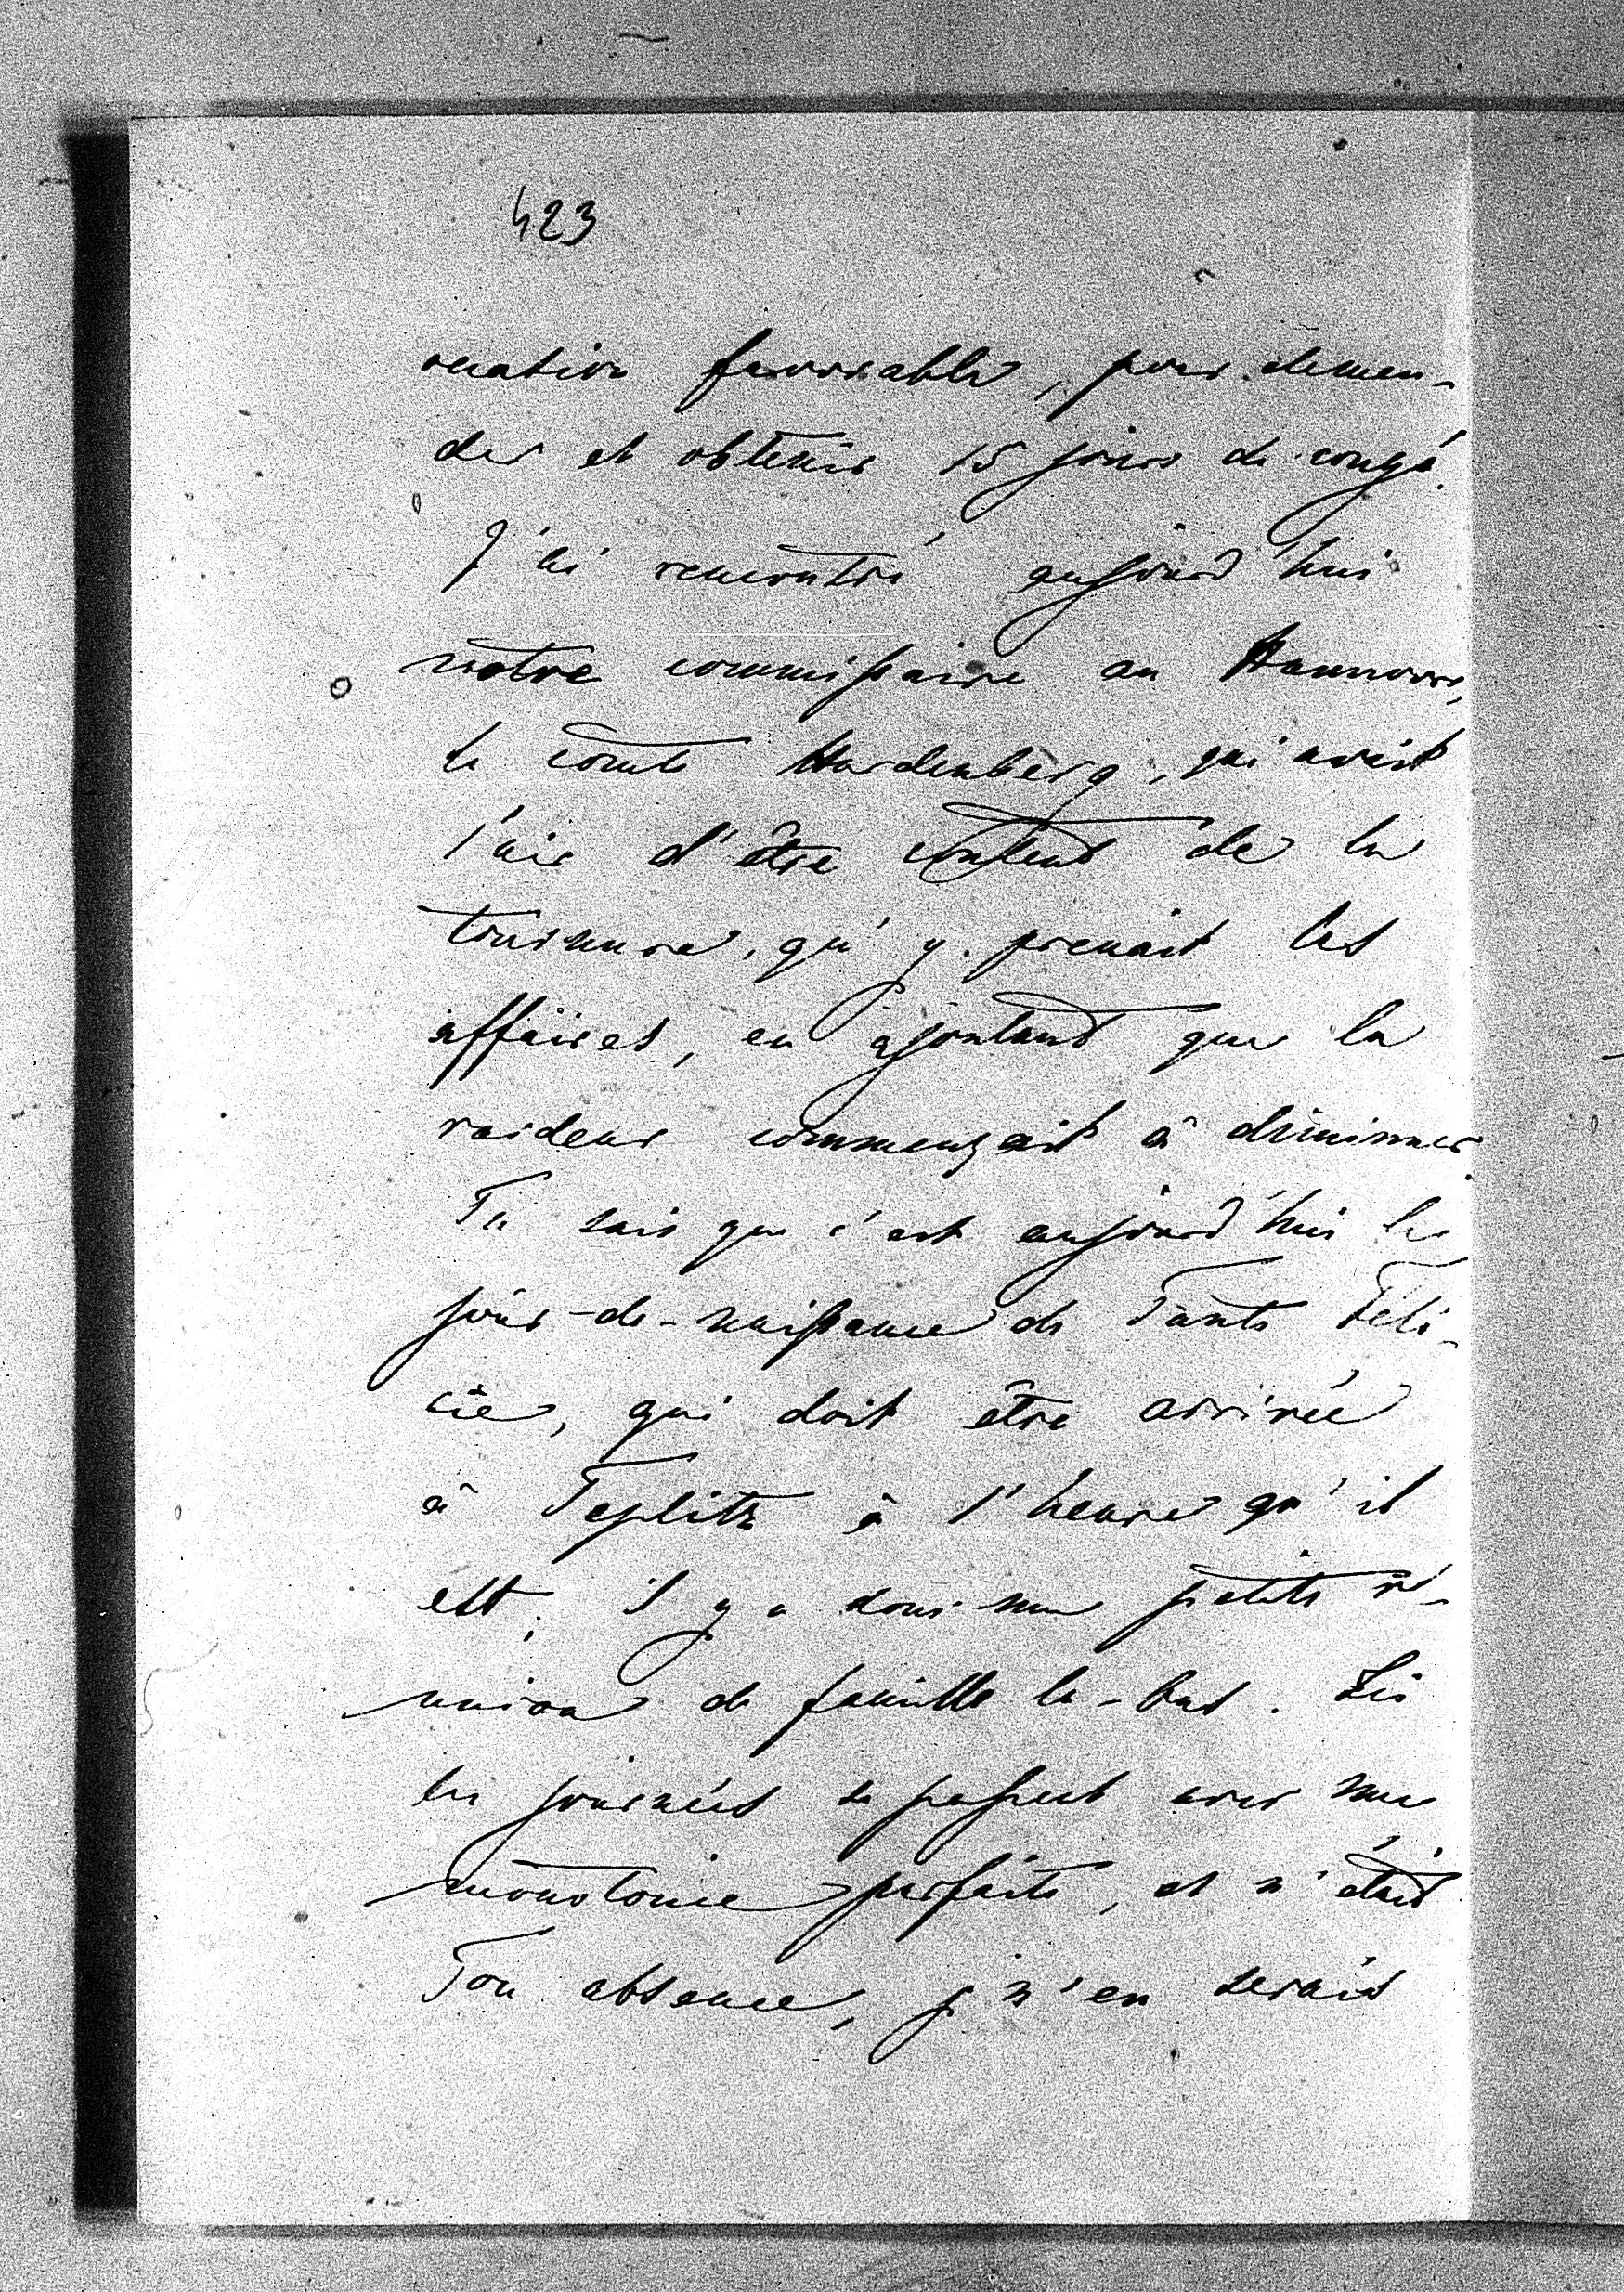 423
occasion favorable, pour deman-
der et obtenir 15 jours de congé.
J'ai rencontré aujourd'hui
notre commissaire au Hannovre,
le comte Hardenberg, qui avait
l'air d'être content de la
tournure, qu'y prenait les
affaires, en ajoutant que la
raideur commençait à diminuer.
Tu sais que c'est aujourd'hui le
jour-de-naissance de Tante Féli-
cie, qui doit être arrivée
à Teplitz à l'heure qu'il
est; il y a donc une petite ré-
union de famille la-bas. Ici
les journées se passent avec une
monotonie parfaite, et n'était
Ton absence, j n'en serais